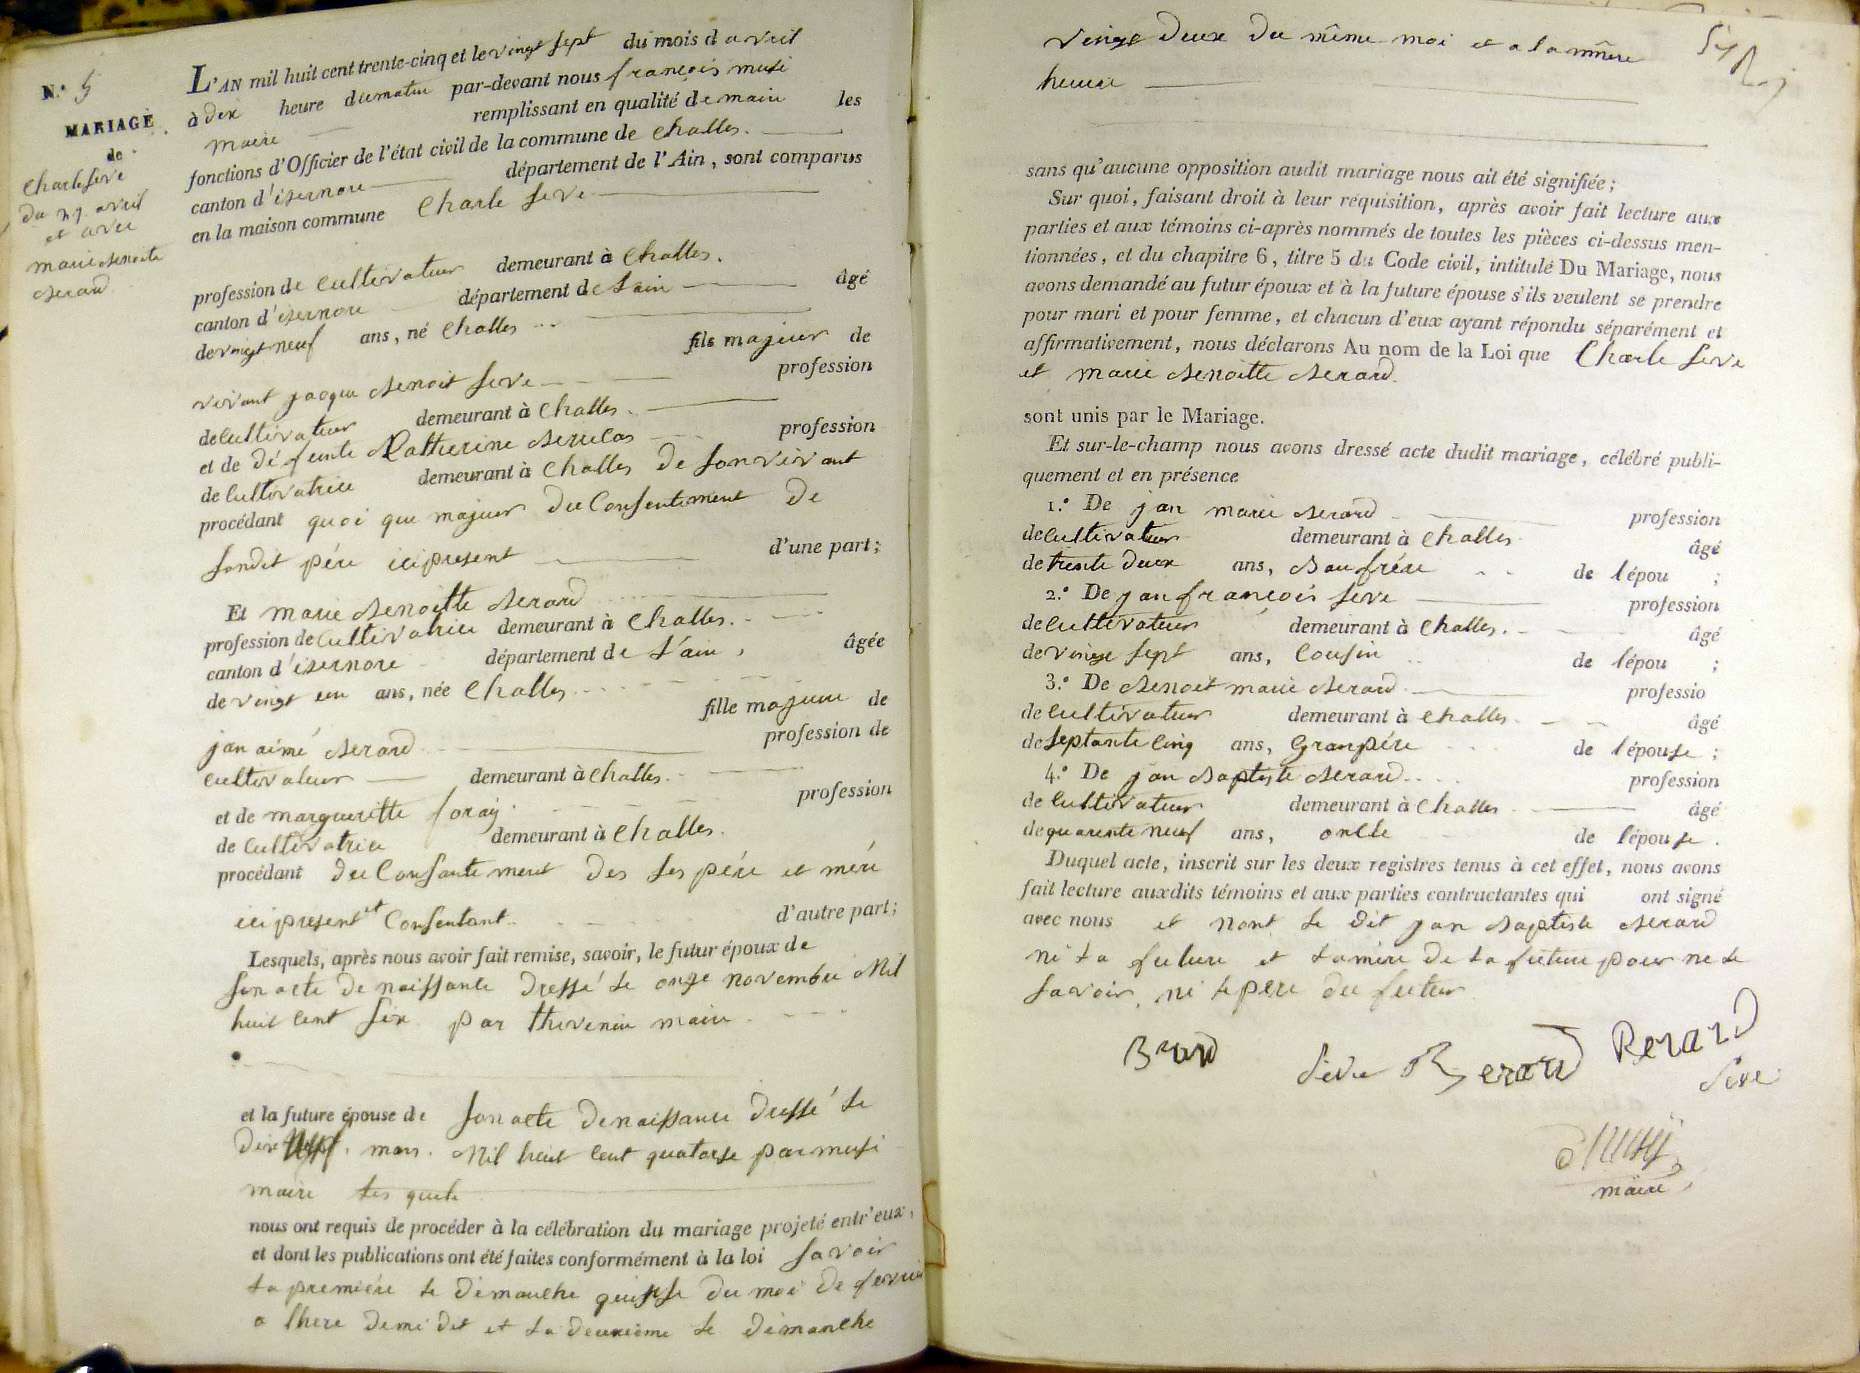 N.º 5
MARIAGE
de
Charle Seve
du 27 avril
et avec
marie Benoite
Berard
L'AN mil huit cent trente-cinq et le vingt sept du mois d avril
à dix heure du matin par-devant nous françois musi
maire remplissant en qualité de maire les
fonctions d'Officier de l'état civil de la commune de Challes.
canton d'isernore département de l'Ain, sont comparus
en la maison commune Charle Seve
profession de cultivateur demeurant à Challes.
canton d'isernore département de Lain âgé
de vingt neuf ans, né Challes
fils majeur de
vivant jacque Benoit Seve profession
de Cultivateur demeurant à Challes.
et de défeunte Catherine profession
de Cultivatrice demeurant à Challes de son vivant
procédant quoi que majeur du Consentement de
sondit pére ici present d'une part;
Et marie Benoitte Berard
profession de cultivatrice demeurant à Challes.
canton d'isernore département de L'ain, âgée
de vingt un ans, née Challes
fille majeure de
jan aimé Berard profession de
cultivateur demeurant à Challes.
et de margueritte foray profession
de Cultivatrice demeurant à Challes.
procédant du Consantement des ses pére et mére
ici present et Consentant d'autre part;
Lesquels, après nous avoir fait remise, savoir, le futur époux de
son acte de naissante dressé le onze novembre Mil
huit Cent Six par thevenin maire
et la future épouse de son acte denaissance dressé le
dix mars. Mil huit Cent quatorse par musi
maire les quels
nous ont requis de procéder à la célébration du mariage projeté entr'eux,
et dont les publications ont été faites conformément à la loi savoir
la premiére le dimanche quinse du moi de fevrier
a lhere demi dit et la deuxieme le dimanche
vingt deux du même moi et a la même
heure
sans qu'aucune opposition audit mariage nous ait été signifiée;
Sur quoi, faisant droit à leur réquisition, après avoir fait lecture aux
parties et aux témoins ci-après nommés de toutes les pièces ci-dessus men-
tionnées, et du chapitre 6, titre 5 du Code civil, intitulé Du Mariage, nous
avons demandé au futur époux et à la future épouse s'ils veulent se prendre
pour mari et pour femme, et chacun d'eux ayant répondu séparément et
affirmativement, nous déclarons Au nom de la Loi que Charle Seve
et marie Benoitte Berard.
sont unis par le Mariage.
Et sur-le-champ nous avons dressé acte dudit mariage, célébré publi-
quement et en présence
1.º De jan marie Berard profession
de cultivateur demeurant à Challes âgé
de trente deux ans, Baufrére de l'épou ;
2.º De jan françois Seve profession
de cultivateur demeurant à Challes. âgé
de vingt sept ans, Cousin de l'épou ;
3.º De Benoit marie Berard profession
de Cultivateur demeurant à Challes. âgé
de septante Cinq ans, Granpére de l'épouse ;
4.º De jan Baptiste Berard profession
de Cultivateur demeurant à Challes âgé
de quarente neuf ans, oncle de l'épouse.
Duquel acte, inscrit sur les deux registres tenus à cet effet, nous avons
fait lecture auxdits témoins et aux parties contractantes qui ont signé
avec nous et nont le dit jan Baptiste Berard
ni la future et la mére de la future pour ne le
savoir, ni le pere du futur
Berard Seve Berard Berard
Seve
Musy
maire